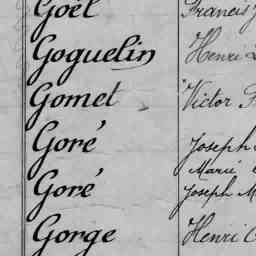 Goël Francis
Goguelin Henri
Gomet Victor
Goré Joseph
Marie
Goré Joseph M
Gorge Henri